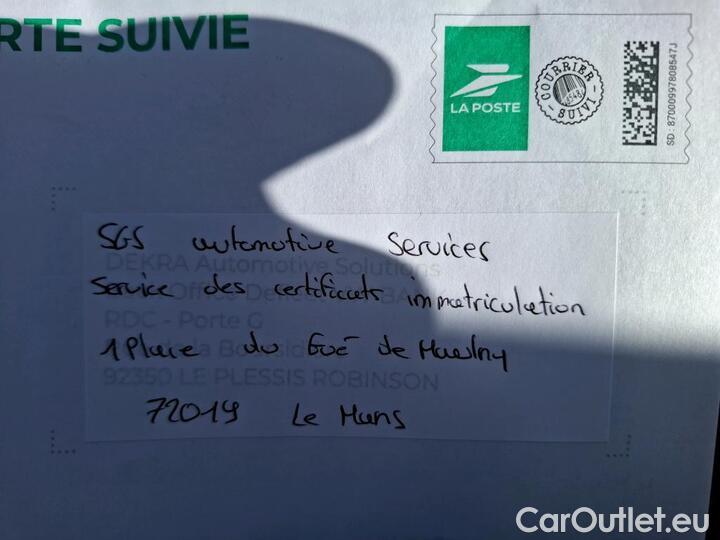 RTE SUIVIE
LA POSTE
COURRIER
SUIVI
SD : 87000997808547J
SGS automotive Services
DEKRA Automotive Solutions
Service des certificats immatriculation
RDC - Porte G
1 Place du Gué de Maulny
92350 LE PLESSIS ROBINSON
72019 Le Mans
CarOutlet.eu